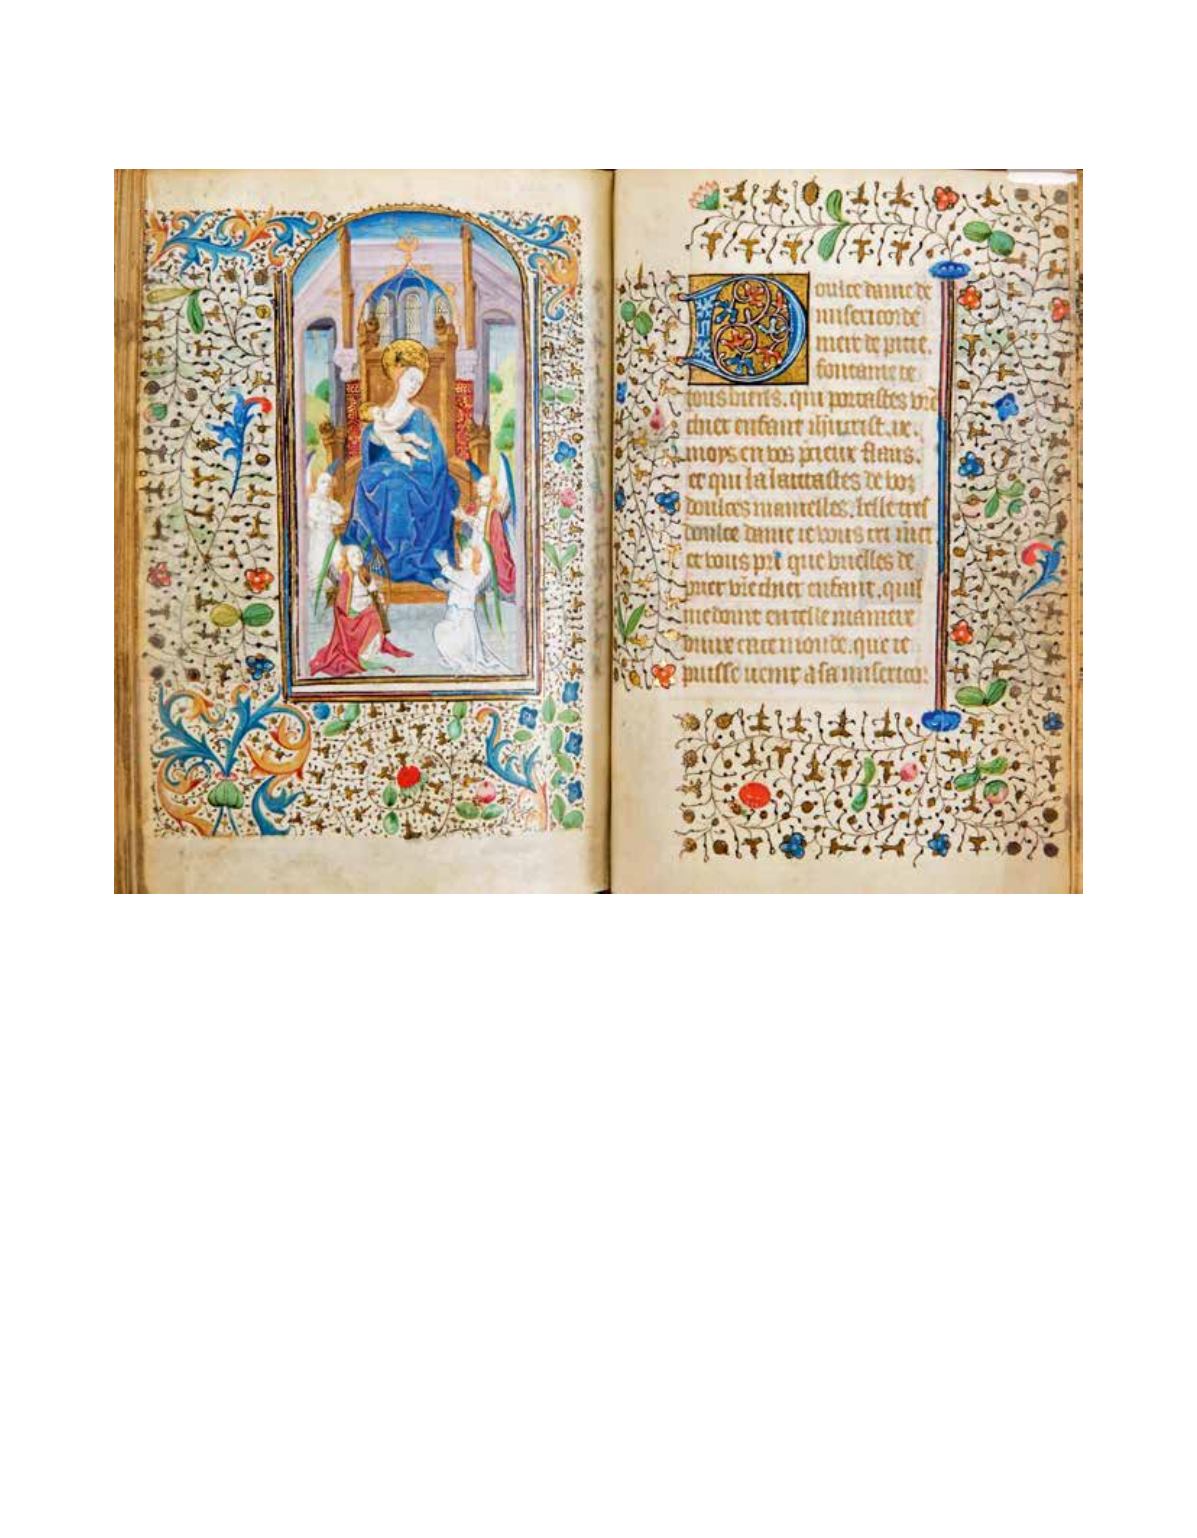 Doulce dame de
misericorde
mere de pitie.
fontaine de
tous biens. qui portastes vrẽ
chier enfant ihũcrist. ix.
moys en vos precieux flans.
et qui la laittastes de voz
doulces mamelles. belle tres
doulce dame ie vous cri mer
ce vous pri que vuelles de
prier vrẽ chier enfant. quil
me doint en telle maniere
viure en ce monde. que ie
puisse uenir à sa misericor